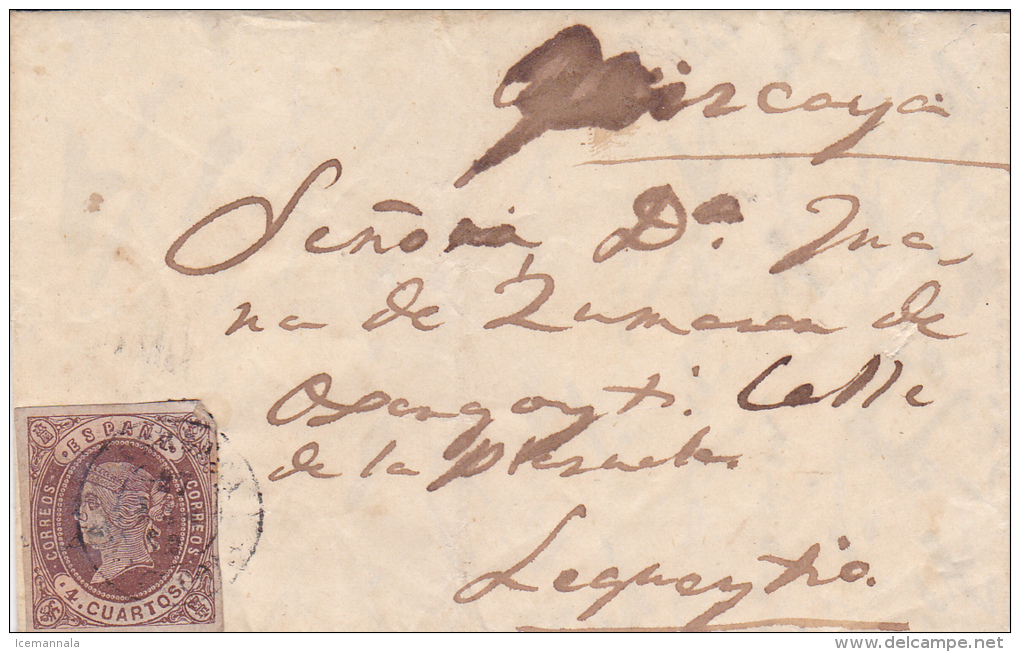 Vizcaya
Señora, Dª. Jua-
na de Zumaran de
Oxangoyti. Calle
de la Plazuela.
Lequeytio.
· ESPAÑA ·
CORREOS
CORREOS
· 4 · CUARTOS ·
Icemannala
www.delcampe.net